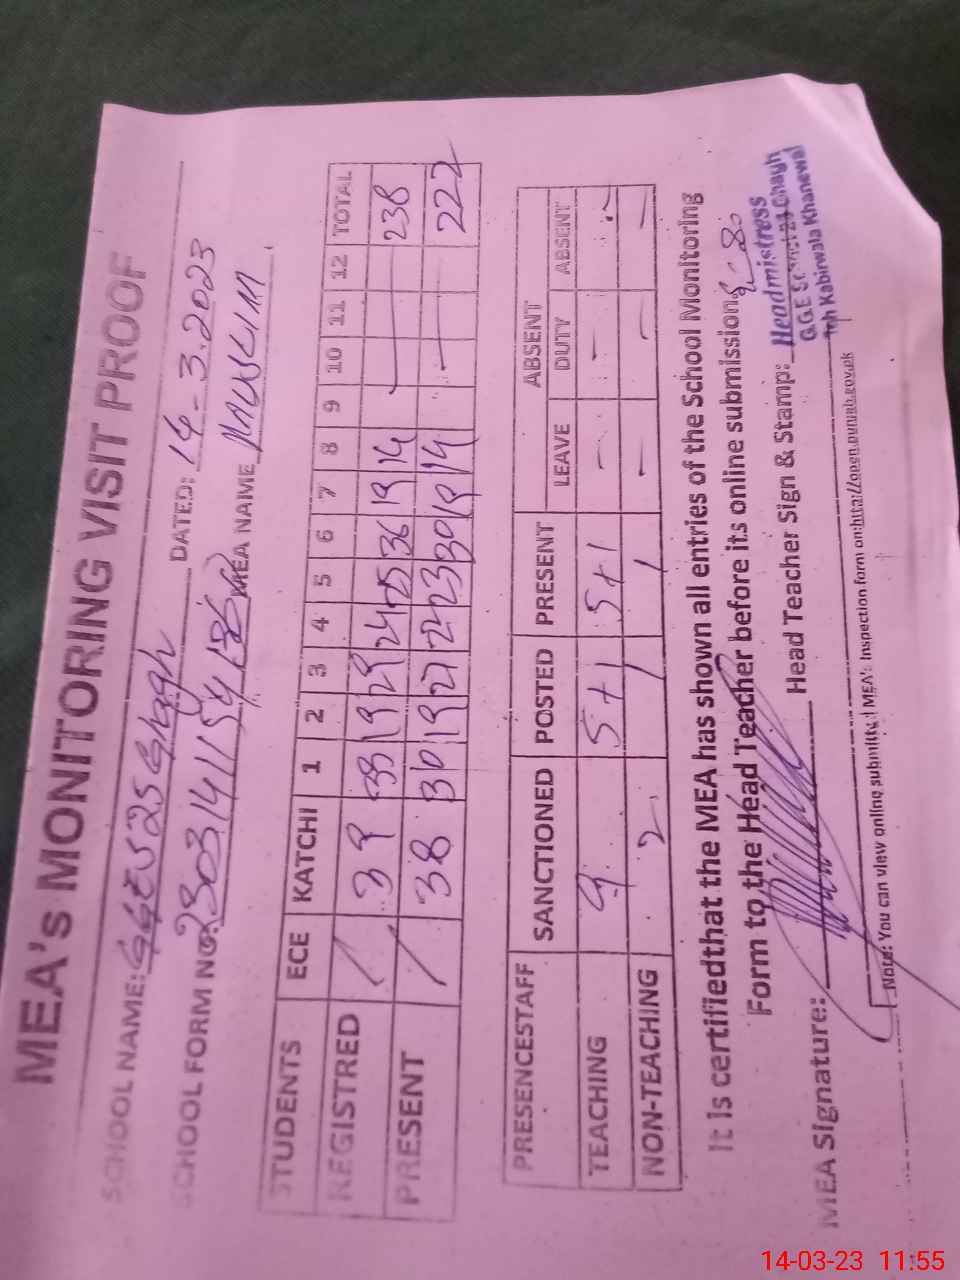 MEA's MONITORING VISIT PROOF
SCHOOL NAME: GGES 25 Ghagh
DATED: 14-3.2023
SCHOOL FORM NO. 2303141154
MEA NAME
STUDENTS ECE KATCHI 1 2 3 4 5 6 7 8 9 10 11 12 TOTAL
REGISTRED / 39 33 19 29 24 25 36 19 14 — 238
PRESENT / 38 30 19 27 22 23 30 19 14 — 222
PRESENCESTAFF SANCTIONED POSTED PRESENT ABSENT
LEAVE DUTY ABSENT
TEACHING 9 5+1 5+1 - - -
NON-TEACHING 2 1 1 - - -
It Is certifiedthat the MEA has shown all entries of the School Monitoring
Form to the Head Teacher before its online submission.
MEA Signature: Head Teacher Sign & Stamp: Headmistress
G.G.E School 25 Ghagh
Teh Kabirwala Khanewal
Note: You can view online submitted MEA's Inspection form on:http://open.punjab.gov.pk
14-03-23 11:55